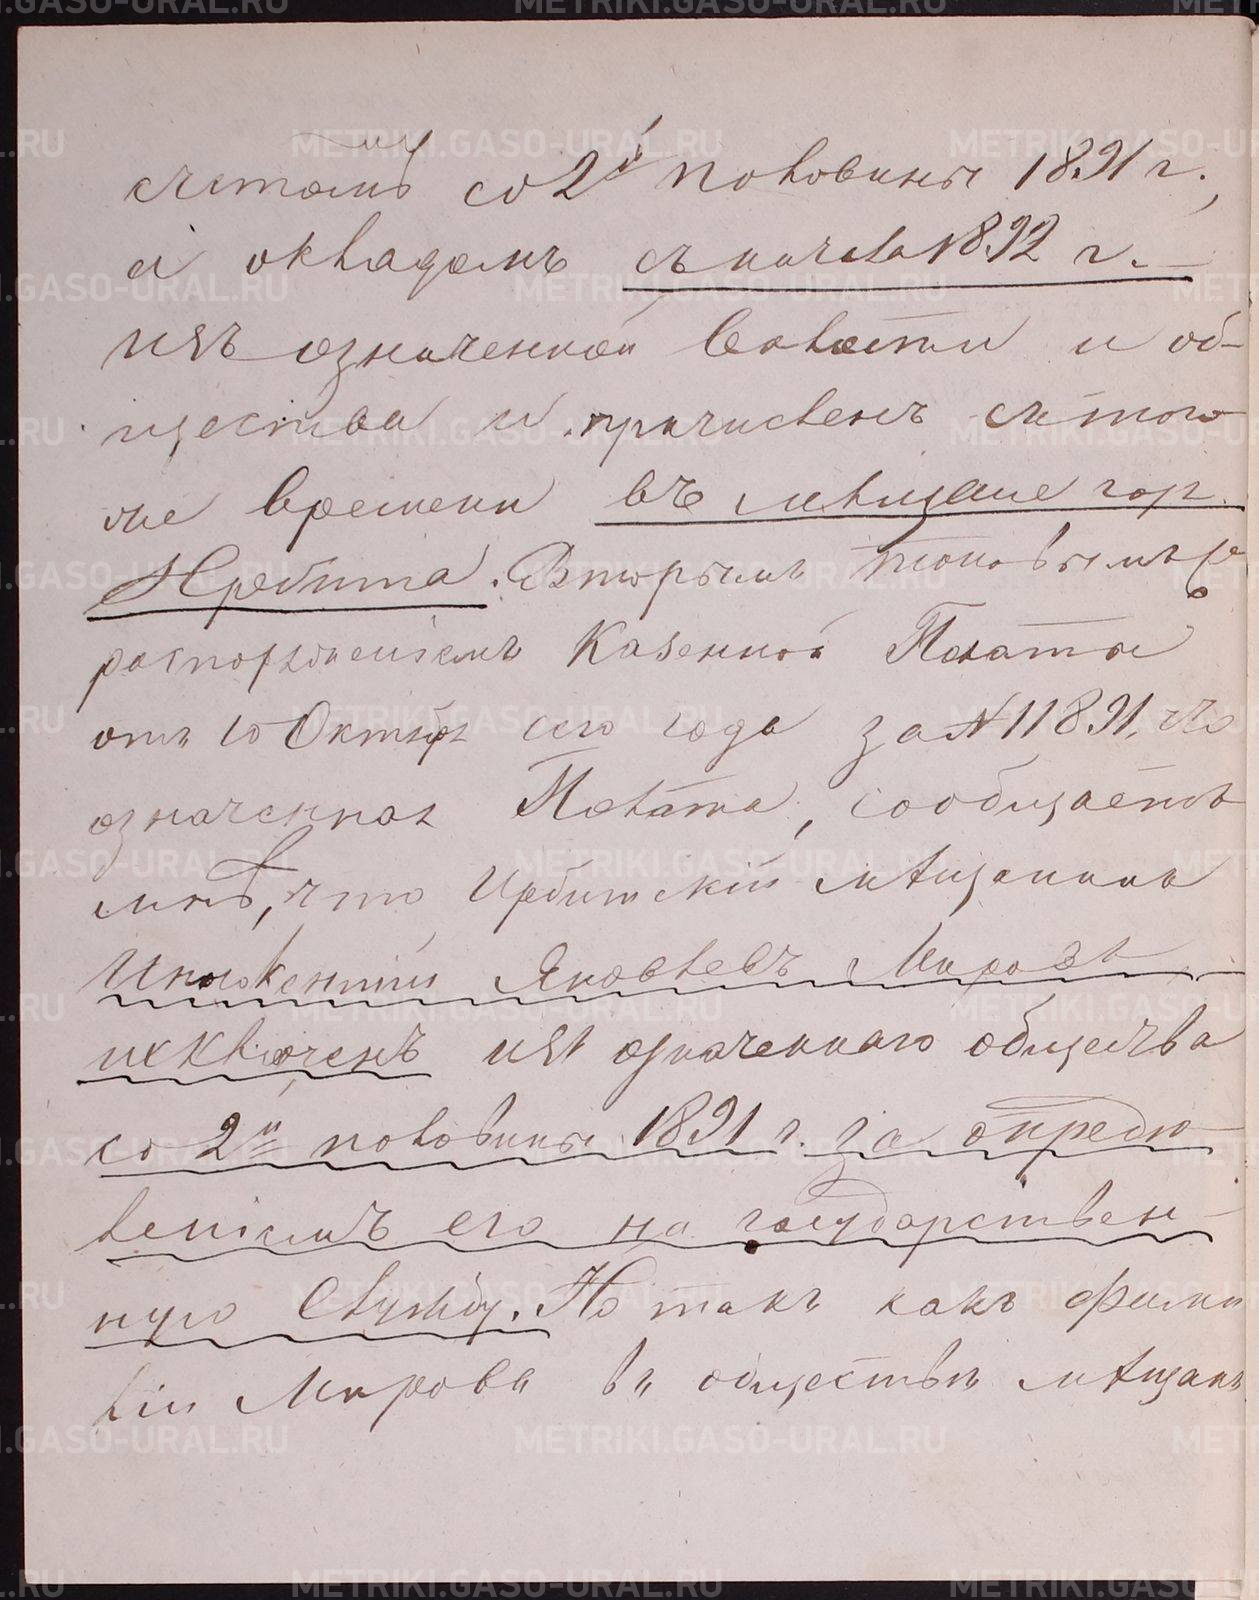 счетомъ со 2й половины 1891 г.,
а окладомъ съ начала 1892 г. –
изъ означенной волости и об-
щества и причисленъ съ того
же времени въ мѣщане гор.
Ирбита. Вторымъ таковымъ же
распоряженіемъ Казенной Палаты
отъ 10 Октября сего года за № 11891, что
означенная Палата, сообщаетъ
мнѣ, что Ирбитскій мѣщанинъ
Инокентій Яковлевъ Мировъ
исключенъ изъ означеннаго общества
со 2й половины 1891 г. за опредѣ-
леніемъ его на государствен-
ную службу. Но такъ какъ фами
лія Мирова въ обществѣ мѣщанъ